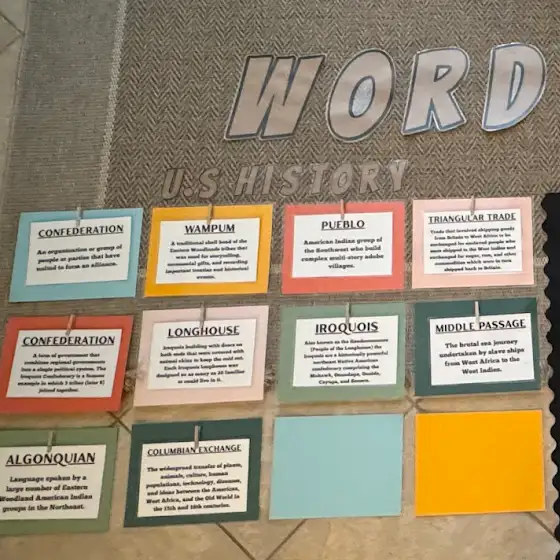 WORD
U.S HISTORY
CONFEDERATION
An organization or group of
people or parties that have
united to form an alliance.
WAMPUM
A traditional shell bead of the
Eastern Woodlands tribes that
was used for storytelling,
ceremonial gifts, and recording
important treaties and historical
events.
PUEBLO
American Indian group of
the Southwest who build
complex multi-story adobe
villages.
TRIANGULAR TRADE
Trade that involved shipping goods
from Britain to West Africa to be
exchanged for enslaved people who
were shipped to the West Indies and
exchanged for sugar, rum, and other
commodities which were in turn
shipped back to Britain.
CONFEDERATION
A form of government that
combines regional governments
into a single political system. The
Iroquois Confederacy is a famous
example in which 5 tribes (later 6)
joined together.
LONGHOUSE
Iroquois building with doors on
both ends that were covered with
animal skins to keep the cold out.
Each Iroquois longhouse was
designed so as many as 20 families
or could live in it.
IROQUOIS
Also known as the Haudenosaunee
(People of the Longhouse) the
Iroquois are a historically powerful
northeast Native American
confederacy comprising the
Mohawk, Onondaga, Oneida,
Cayuga, and Seneca.
MIDDLE PASSAGE
The brutal sea journey
undertaken by slave ships
from West Africa to the
West Indies.
ALGONQUIAN
Language spoken by a
large number of Eastern
Woodland American Indian
groups in the Northeast.
COLUMBIAN EXCHANGE
The widespread transfer of plants,
animals, culture, human
populations, technology, diseases,
and ideas between the Americas,
West Africa, and the Old World in
the 15th and 16th centuries.